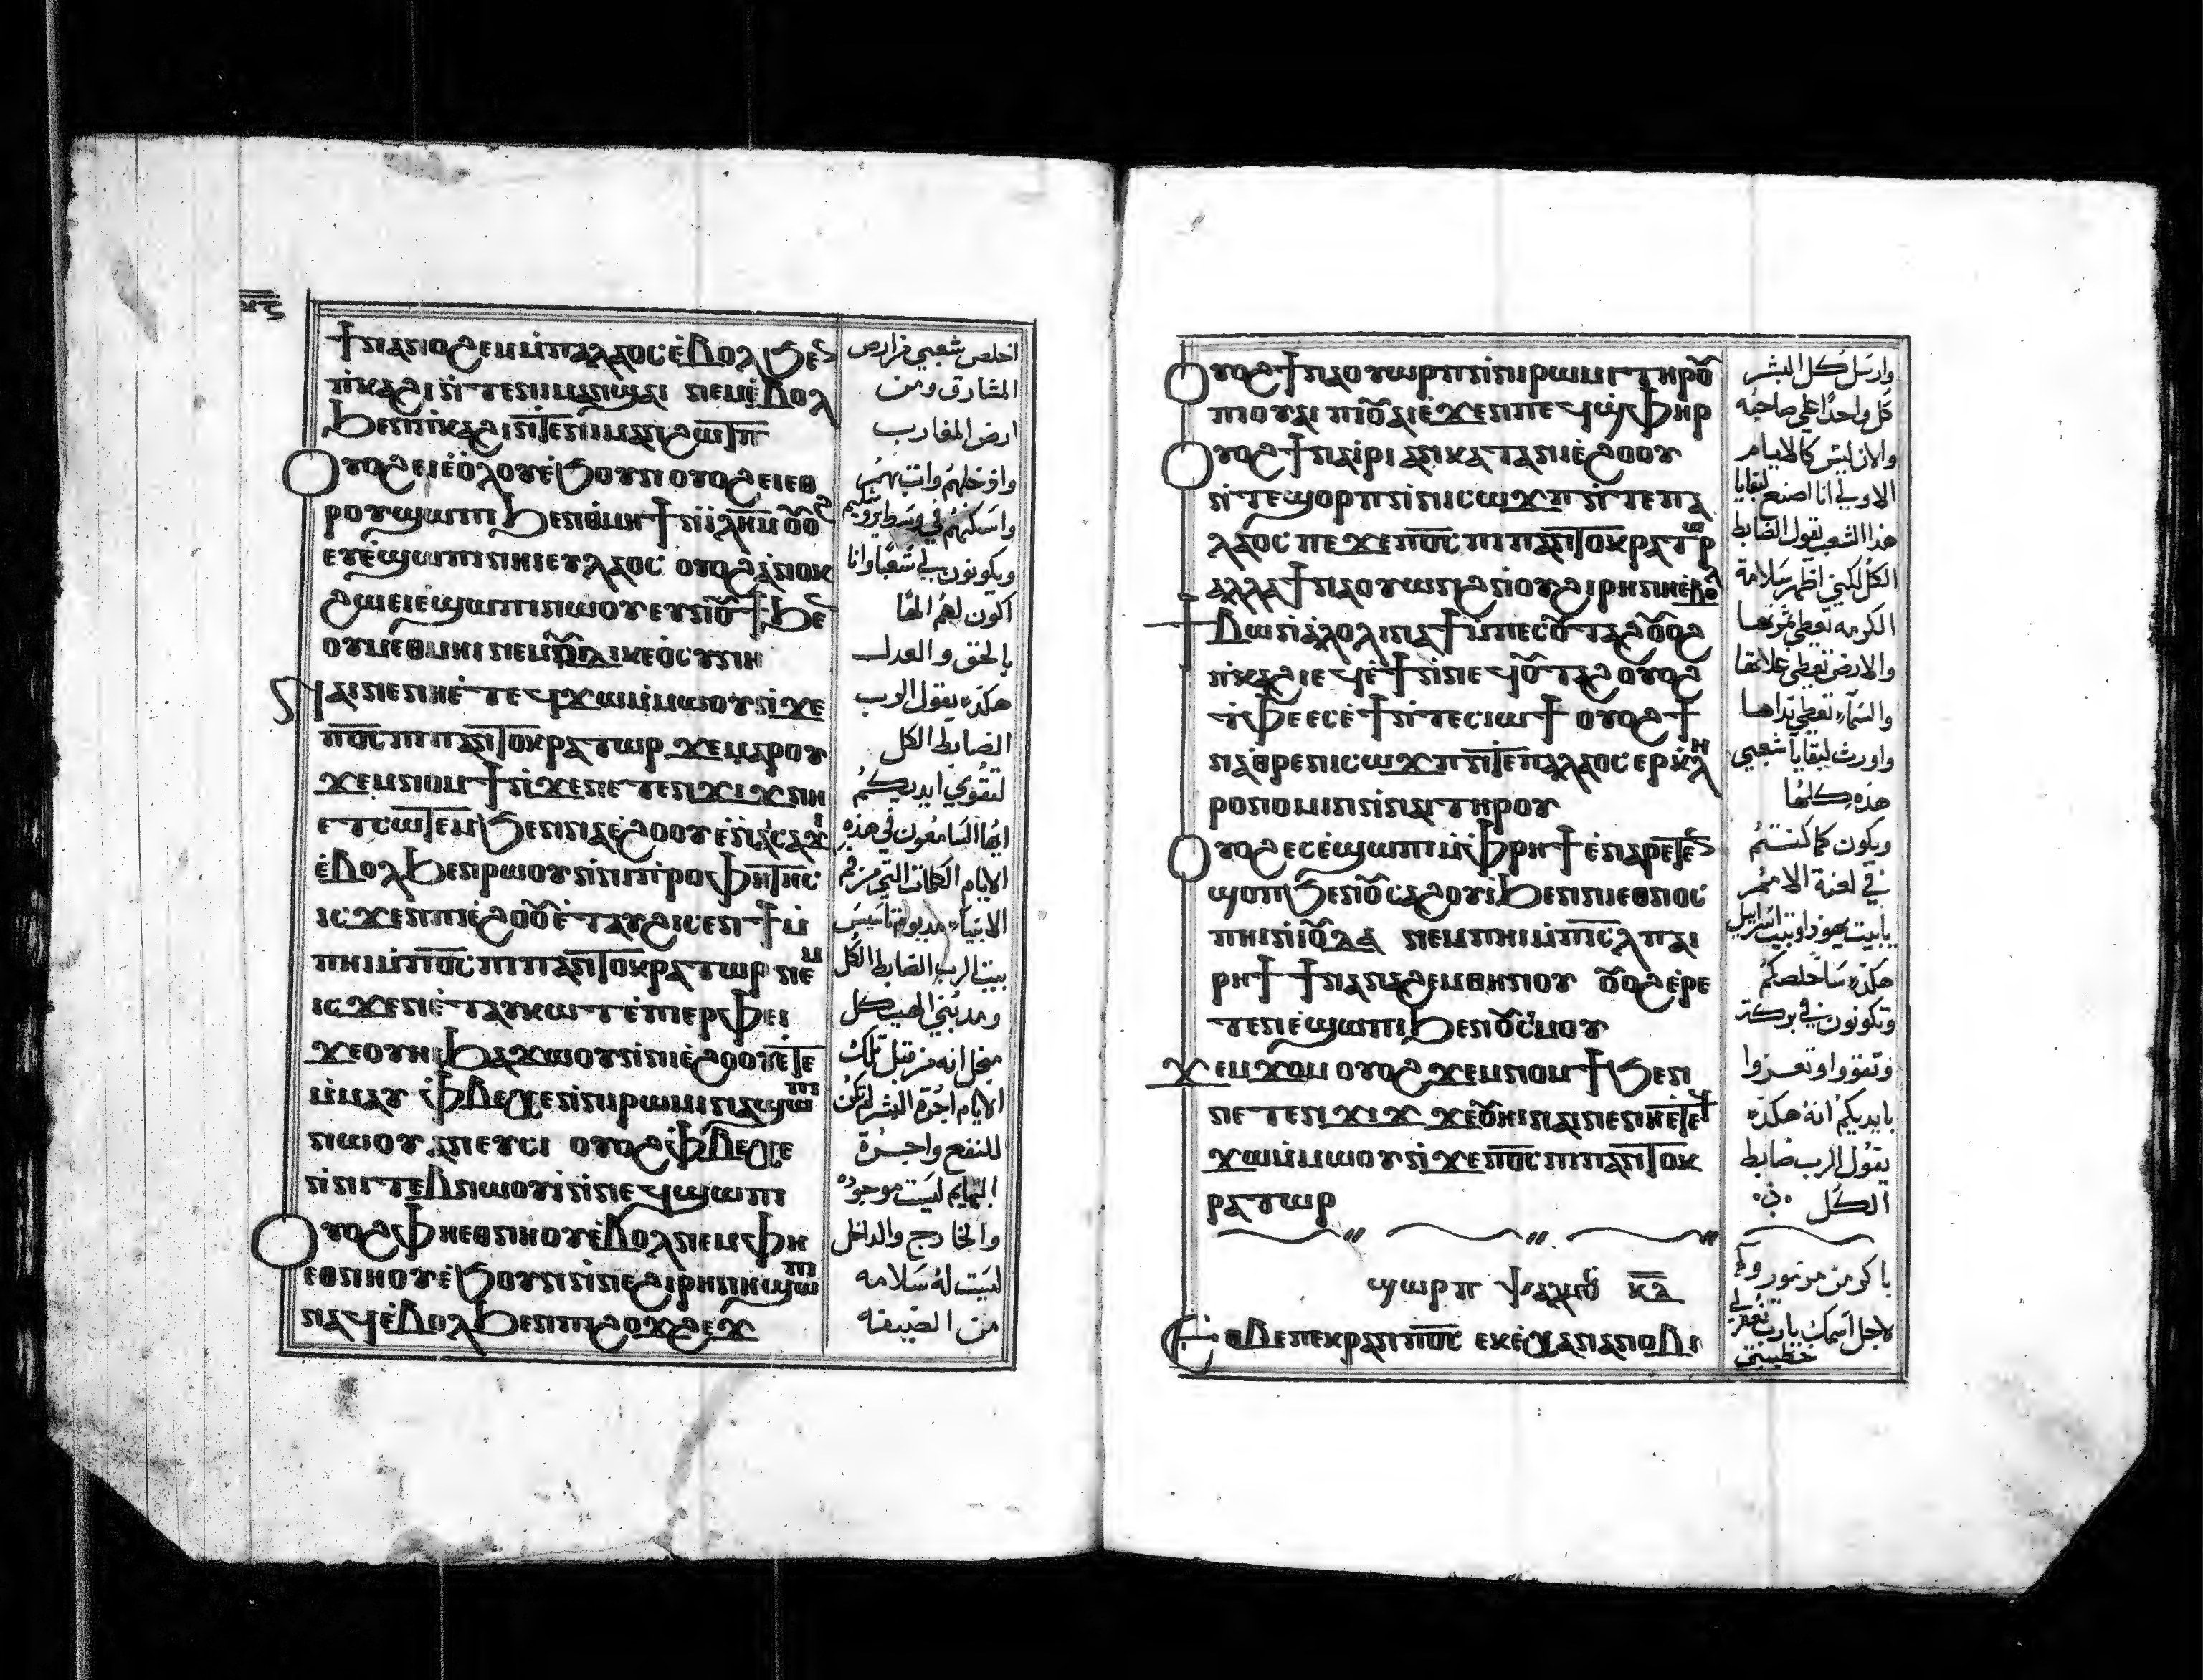 ϯⲛⲁⲛⲟϩⲉⲙ ⲙ̀ⲡⲁⲗⲁⲟⲥ ⲉ̀ⲃⲟⲗ ϧⲉⲛ
ⲡ̀ⲕⲁϩⲓ ⲛ̀ⲧⲉ ⲛⲓⲙⲁⲛϣⲁⲓ ⲛⲉⲙ ⲉ̀ⲃⲟⲗ
ϧⲉⲛ ⲡ̀ⲕⲁϩⲓ ⲛ̀ⲧⲉ ⲛⲓⲙⲁⲛϩⲱⲧⲡ
Ⲟⲩⲟϩ ⲉⲓⲉ̀ⲟⲗⲟⲩ ⲉ̀ϧⲟⲩⲛ ⲟⲩⲟϩ ⲉⲓⲉⲑ
ⲣⲟⲩϣⲱⲡⲓ ϧⲉⲛ ⲑⲙⲏϯ ⲛ̀ⲓ̀ⲗ̅ⲏ̅ⲙ̅ ⲟⲩⲟϩ
ⲉⲩⲉ̀ϣⲱⲡⲓ ⲛⲏⲓ ⲉⲩⲗⲁⲟⲥ ⲟⲩⲟϩ ⲁ̀ⲛⲟⲕ
ϩⲱ ⲉⲓⲉϣⲱⲡⲓ ⲛⲱⲟⲩ ⲉⲩⲛⲟⲩϯ ϧⲉⲛ
ⲟⲩⲙⲉⲑⲙⲏⲓ ⲛⲉⲙ ⲟⲩⲇⲓⲕⲉⲟⲥⲩⲛⲏ
Ⲛⲁⲓ ⲛⲉ ⲛⲏⲉ̀ⲧⲉϥϫⲱ ⲙ̀ⲙⲱⲟⲩ ⲛ̀ϫⲉ
ⲡ̅ⲟ̅ⲥ̅ ⲡⲓⲡⲁⲛⲧⲟⲕⲣⲁⲧⲱⲣ ϫⲉ ⲙⲁⲣⲟⲩ
ϫⲉⲙⲛⲟⲙϯ ⲛ̀ϫⲉ ⲛⲉⲧⲉⲛϫⲓϫ ⲛⲏ
ⲉⲧⲥⲱⲧⲉⲙ ϧⲉⲛ ⲛⲁⲓⲉ̀ϩⲟⲟⲩ ⲉ̀ⲛⲁⲓⲥⲁϫⲓ
ⲉ̀ⲃⲟⲗ ϧⲉⲛ ⲣⲱⲟⲩ ⲛ̀ⲛⲓⲡⲣⲟⲫⲏⲧⲏⲥ
ⲓⲥϫⲉⲛ ⲡⲓⲉ̀ϩⲟⲟⲩ ⲉ̀ⲧⲁⲩϩⲓⲥⲉⲛϯ ⲙ̀
ⲡⲏⲓ ⲙ̀ⲡ̅ⲟ̅ⲥ̅ ⲡⲓⲡⲁⲛⲧⲟⲕⲣⲁⲧⲱⲣ ⲛⲉⲙ
ⲓⲥϫⲉⲛ ⲉ̀ⲧⲁⲩⲕⲱⲧ ⲉ̀ⲡⲓⲉⲣⲫⲉⲓ
ϫⲉ ⲟⲩⲏⲓ ϧⲁϫⲱⲟⲩ ⲛ̀ⲛⲓⲉ̀ϩⲟⲟⲩ ⲉⲧⲉ
ⲙ̀ⲙⲁⲩ ⲫ̀ⲃⲉⲭⲉ ⲛ̀ⲛⲓⲣⲱⲙⲓ ⲛⲁϣⲱⲡⲓ
ⲛⲱⲟⲩ ⲁⲛ ⲉⲩⲥⲓ ⲟⲩⲟϩ ⲫ̀ⲃⲉⲭⲉ
ⲛ̀ⲛⲓⲧⲉⲃⲛⲱⲟⲩⲓ̀ ⲛ̀ⲛⲉϥϣⲱⲡⲓ
Ⲟⲩⲟϩ ⲫⲏⲉⲑⲛⲏⲟⲩ ⲉ̀ⲃⲟⲗ ⲛⲉⲙ ⲫⲏ
ⲉⲑⲛⲏⲟⲩ ⲉ̀ϧⲟⲩⲛ ⲛ̀ⲛⲉ ϩⲓⲣⲏⲛⲏ ϣⲱⲡⲓ
ⲛⲁϥ ⲉ̀ⲃⲟⲗ ϧⲉⲛ ⲡⲓϩⲟϫϩⲉϫ
اخلص شعبي من ارض
المشارق ومن
ارض المغارب
واذخلهم واتٮ بهم
واسكنهم في وسط يروشليم
ويكونون لي شعبًا وانا
اكون لهم الهًا
بالحق والعدل
هكذه يقول الرب
الضابط الكل
لتقوي ايديكم
ايها السامعون في هذه
الايام الكلمات التي من فم
الانبياء مد يوم تاسيس
بيت الرب الضابط الكل
ومد بني الهيكل
من قبل تلك
الايام اجرة البشر لم تكن
للنفع واجرة
البهايم ليست موجوده
والخارج والداخل
ليست له سلامه
من الضيقه
Ⲟⲩⲟϩ ϯⲛⲁⲟⲩⲱⲣⲡ ⲛ̀ⲛⲓⲣⲱⲙⲓ ⲧⲏⲣⲟⲩ
ⲡⲓⲟⲩⲁⲓ ⲡⲓⲟⲩⲁⲓ ⲉ̀ϫⲉⲛ ⲡⲉϥϣ̀ⲫⲏⲣ
Ⲟⲩⲟϩ ϯⲛⲁⲓ̀ⲣⲓ ⲁⲛ ⲕⲁⲧⲁ ⲛⲓⲉ̀ϩⲟⲟⲩ
ⲛ̀ⲧⲉ ϣⲟⲣⲡ ⲛ̀ⲛⲓⲥⲱϫⲡ ⲛ̀ⲧⲉ ⲡⲁ
ⲗⲁⲟⲥ ⲡⲉϫⲉ ⲡ̅ⲟ̅ⲥ̅ ⲡⲓⲡⲁⲛⲧⲟⲕⲣⲁⲧⲱⲣ
ⲁⲗⲗⲁ ϯⲛⲁⲟⲩⲱⲛϩ ⲛ̀ⲟⲩϩⲓⲣⲏⲛⲏ ⲉ̀ⲃⲟⲗ
ϯⲃⲱ ⲛ̀ⲁ̀ⲗⲟⲗⲓ ⲛⲁϯ ⲙ̀ⲡⲉⲥⲟⲩⲧⲁϩ ⲟⲩⲟϩ
ⲡ̀ⲕⲁϩⲓ ⲉϥⲉ̀ϯ ⲛ̀ⲛⲉϥⲟⲩⲧⲁϩ ⲟⲩⲟϩ
ⲧ̀ⲫⲉ ⲉⲥⲉ̀ϯ ⲛ̀ⲧⲉⲥⲓⲱϯ ⲟⲩⲟϩ ϯ
ⲛⲁⲑⲣⲉ ⲛⲓⲥⲱϫⲡ ⲛ̀ⲧⲉ ⲡⲁⲗⲁⲟⲥ ⲉⲣⲕ̀ⲗⲏ
ⲣⲟⲛⲟⲙⲓⲛ ⲛ̀ⲛⲁⲓ ⲧⲏⲣⲟⲩ
Ⲟⲩⲟϩ ⲉⲥⲉ̀ϣⲱⲡⲓ ⲙ̀ⲫ̀ⲣⲏϯ ⲉ̀ⲛⲁⲣⲉⲧⲉⲛ
ϣⲟⲡ ϧⲉⲛ ⲟⲩⲥⲁϩⲟⲩⲓ̀ ϧⲉⲛ ⲛⲓⲉⲑⲛⲟⲥ
ⲡⲏⲓ ⲛ̀ⲓⲟⲩⲇⲁ ⲛⲉⲙ ⲡⲏⲓ ⲙ̀ⲡ̅ⲓ̅ⲥ̅ⲗ̅ ⲡⲁⲓ
ⲣⲏϯ ϯⲛⲁⲛⲁϩⲉⲙ ⲑⲏⲛⲟⲩ ⲟⲩⲟϩ ⲉ̀ⲣⲉ
ⲧⲉⲛⲉ̀ϣⲱⲡⲓ ϧⲉⲛ ⲟⲩⲥ̀ⲙⲟⲩ
ϫⲉⲙϫⲟⲙ ⲟⲩⲟϩ ϫⲉⲙⲛⲟⲙϯ ϧⲉⲛ
ⲛⲉⲧⲉⲛϫⲓϫ ϫⲉ ⲟⲩⲏⲓ ⲛⲁⲓ ⲛⲉ ⲛⲏⲉⲧⲉϥ
ϫⲱ ⲙ̀ⲙⲱⲟⲩ ⲛ̀ϫⲉ ⲡ̅ⲟ̅ⲥ̅ ⲡⲓⲡⲁⲛⲧⲟⲕ
ⲣⲁⲧⲱⲣ
ϣⲱⲣⲡ ⲯⲁⲗⲙⲟⲩ ⲕ̅ⲇ̅
Ⲉⲑⲃⲉ ⲡⲉⲕⲣⲁⲛ ⲡ̅ⲟ̅ⲥ̅ ⲉⲕⲉ̀ⲭⲁ ⲛⲁⲛⲟⲃⲓ
وارسل كل البشر
كل واحدًا علي صاحبه
والان ليس كالايام
الاولي انا اصنع لبقايا
هذا الشعب يقول الضابط
الكل لكني اظهر سلامة
الكرمه تعطي ثمرتها
والارض تعطي غلاتها
والسماء تعطي نداها
واورث لبقايا شعبي
هذه كلها
ويكون كما كنتم
في لعنة الامم
يابيت يهوذا وبيت اسراييل
هكذه ساخلصكم
وتكونون في بركة
فتقووا وتعززوا
بايديكم انه هكذه
يقول الرب ضابط
الكل
باكر من مزمور
لاجل اسمك يارب تغفر لي
خطيتي